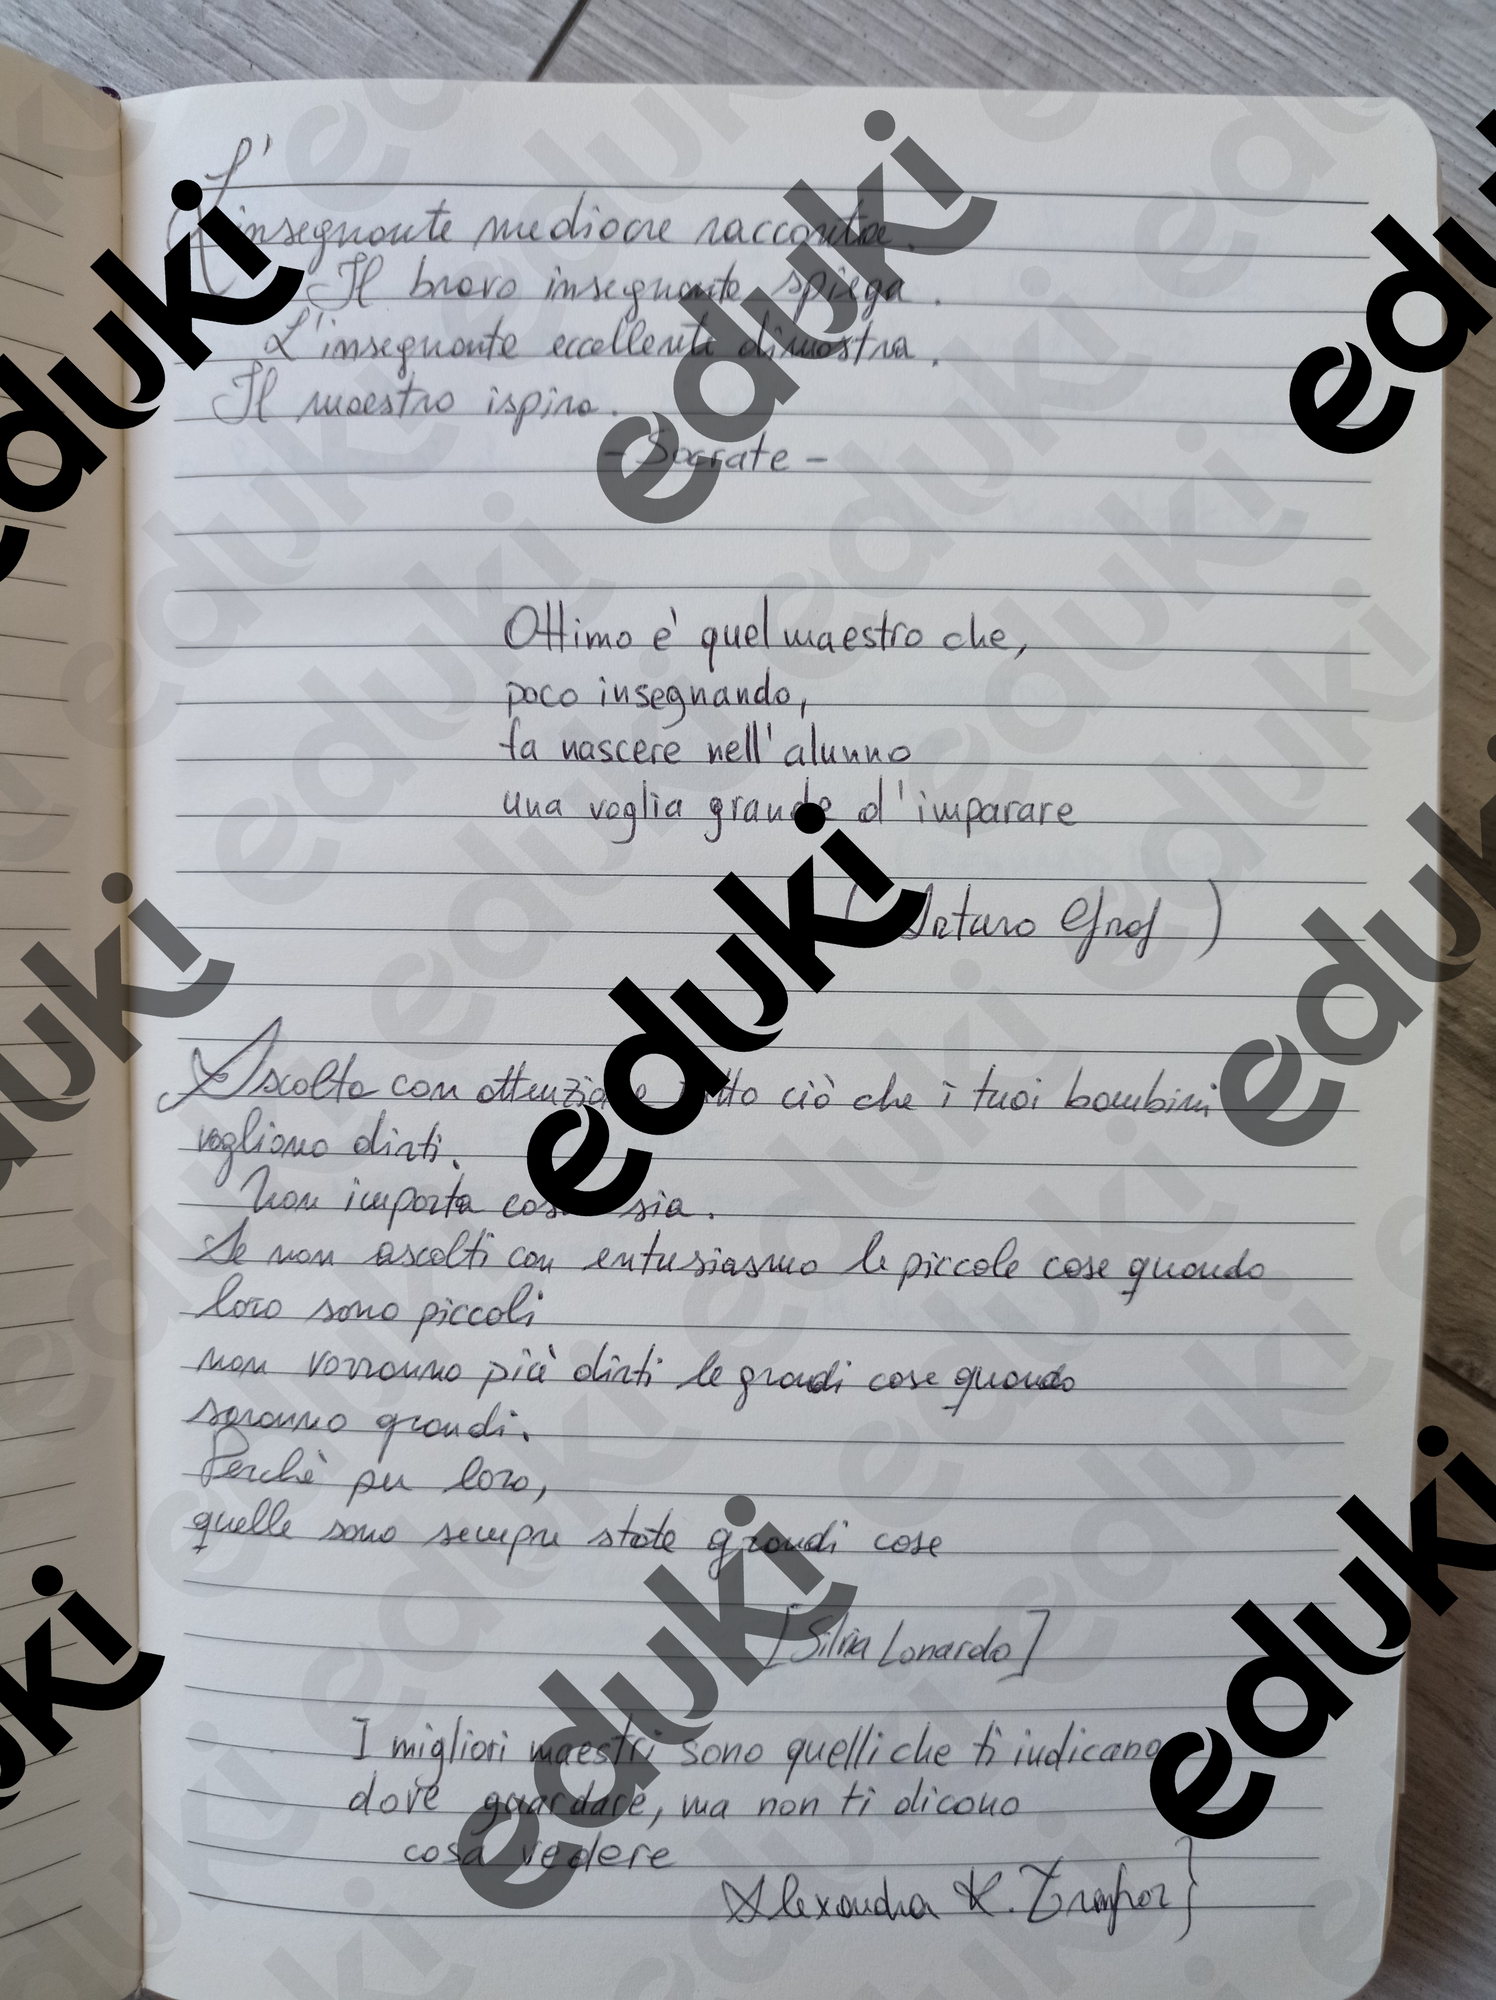 L'
L'insegnante mediocre racconta.
Il bravo insegnante spiega.
L'insegnante eccellente dimostra.
Il maestro ispira.
- Socrate -
Ottimo è quel maestro che,
poco insegnando,
fa nascere nell'alunno
una voglia grande d'imparare
( Arturo Graf )
Ascolta con attenzione tutto ciò che i tuoi bambini
vogliono dirti.
Non importa cosa sia.
Se non ascolti con entusiasmo le piccole cose quando
loro sono piccoli
non vorranno più dirti le grandi cose quando
saranno grandi.
Perché per loro,
quelle sono sempre state grandi cose
[Silvia Lonardo]
I migliori maestri sono quelli che ti indicano
dove guardare, ma non ti dicono
cosa vedere
Alexandra K. Trenfor}
eduki
eduki
eduki
eduki
eduki
eduki
eduki
eduki
eduki